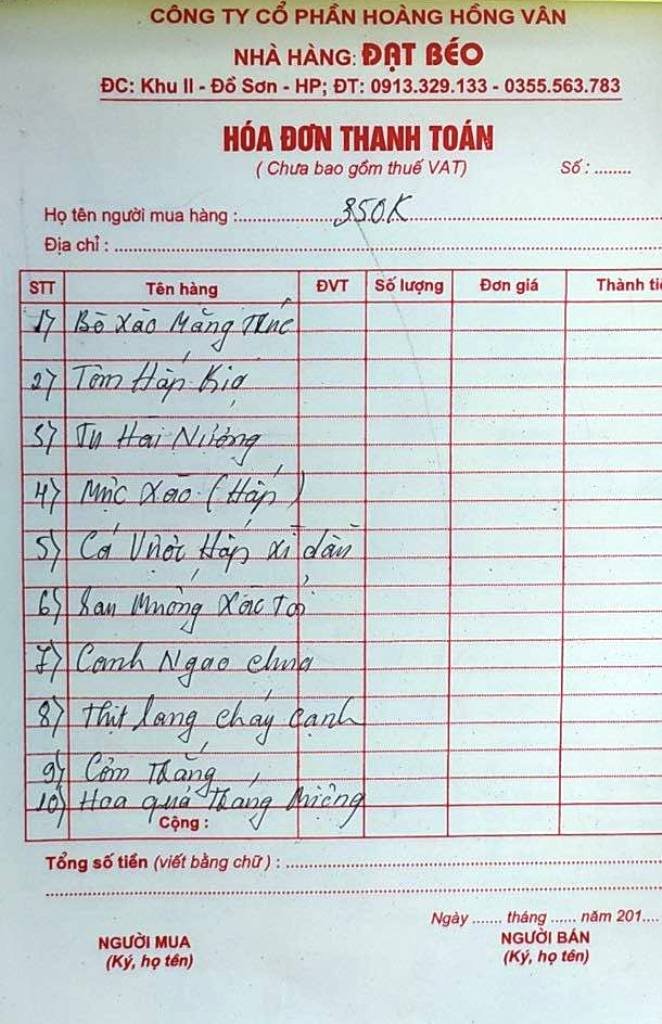 CÔNG TY CỔ PHẦN HOÀNG HỒNG VÂN
NHÀ HÀNG: ĐẠT BÉO
ĐC: Khu II - Đồ Sơn - HP; ĐT: 0913.329.133 - 0355.563.783
HÓA ĐƠN THANH TOÁN
(Chưa bao gồm thuế VAT)
Số : ........
Họ tên người mua hàng : 350K
Địa chỉ :
STT Tên hàng ĐVT Số lượng Đơn giá Thành tiề
1) Bò Xào Măng Trúc
2) Tôm Hấp Bia
3) Tu Hài Nướng
4) Mực Xào (Hấp)
5) Cá Vược Hấp xì dầu
6) Rau Muống Xào Tỏi
7) Canh Ngao chua
8) Thịt lang cháy cạnh
9) Cơm Trắng
10) Hoa quả Tráng Miệng
Cộng :
Tổng số tiền (viết bằng chữ) :
Ngày ....... tháng ...... năm 201....
NGƯỜI MUA NGƯỜI BÁN
(Ký, họ tên) (Ký, họ tên)